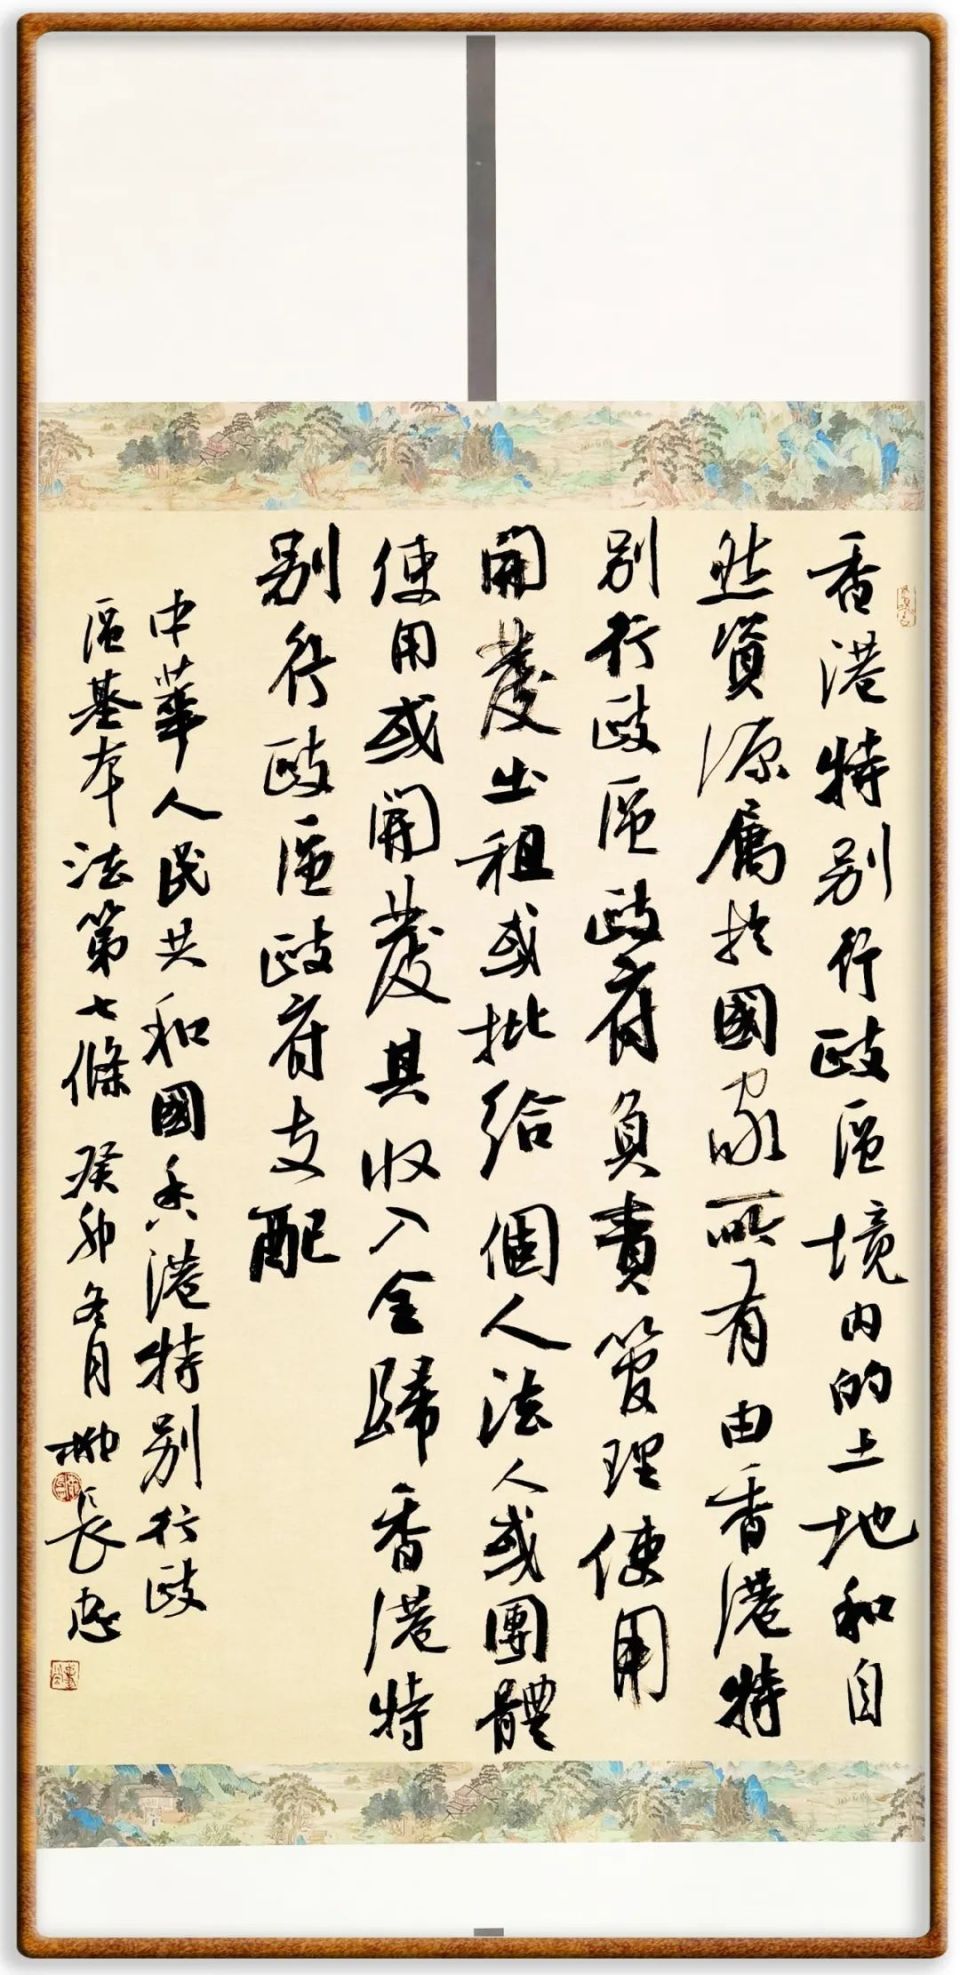 香港特别行政區境内的土地和自
然資源屬於國家所有由香港特
别行政區政府負責管理使用
開發出租或批給個人法人或團體
使用或開發其收入全歸香港特
别行政區政府支配
中華人民共和國香港特别行政
區基本法第七條 癸卯冬月 柳長忠